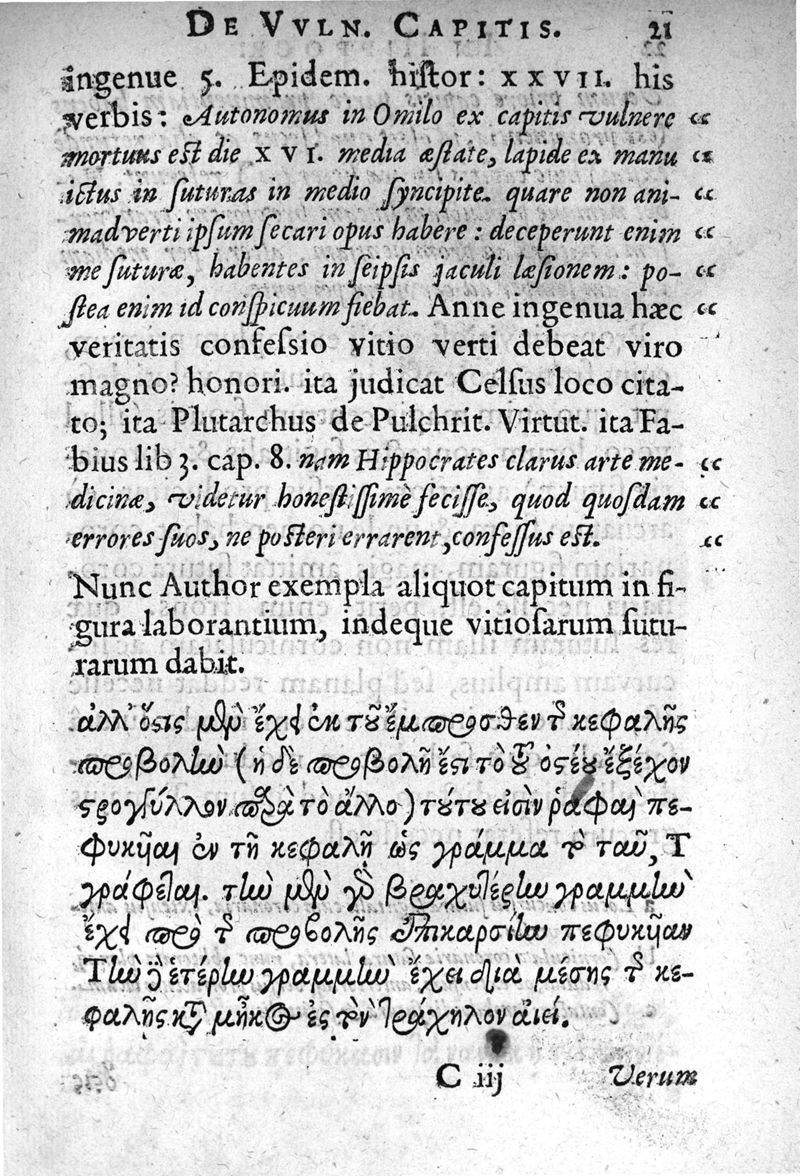 DE VVLN. CAPITIS. 21
ingenue 5. Epidem. histor: XXVII. his
verbis: Autonomus in Omilo ex capitis vulnere “
mortuus est die XVI. media æstate, lapide ex manu “
ictus in suturas in medio syncipite. quare non ani- “
madverti ipsum secari opus habere: deceperunt enim “
me suturæ, habentes in seipsis jaculi læsionem: po- “
stea enim id conspicuum fiebat. Anne ingenua hæc “
veritatis confessio vitio verti debeat viro
magno? honori. ita judicat Celsus loco cita-
to; ita Plutarchus de Pulchrit. Virtut. ita Fa-
bius lib 3. cap. 8. nam Hippocrates clarus arte me- “
dicinæ, videtur honestissimè fecisse, quod quosdam “
errores suos, ne posteri errarent, confessus est. “
Nunc Author exempla aliquot capitum in fi-
gura laborantium, indeque vitiosarum sutu-
rarum dabit.
ἀλλ' ὅστις μὲν ἔχει ἐκ τοῦ ἔμπροσθεν τῆς κεφαλῆς
προβολὴν (ἡ δὲ προβολῆ ἔστι τὸ τοῦ ὀστέου ἐξέχον
στρογγύλλον παρὰ τὸ ἄλλο) τούτου εἰσὶν ῥαφαὶ πε-
φυκυῖαι ἐν τῆ κεφαλῆ ὡς γράμμα τὸ ταῦ, Τ
γράφεται. τὴν μὲν γὰρ βραχυτέρην γραμμὴν
ἔχει πρὸ τῆς προβολῆς ἐπικαρσίην πεφυκυῖαν
Τὴν δὲ ἑτέρην γραμμὴν ἔχει διὰ μέσης τῆς κε-
φαλῆς κατὰ μῆκος ἐς τὸν τράχηλον ἀιεί.
C iij Verum